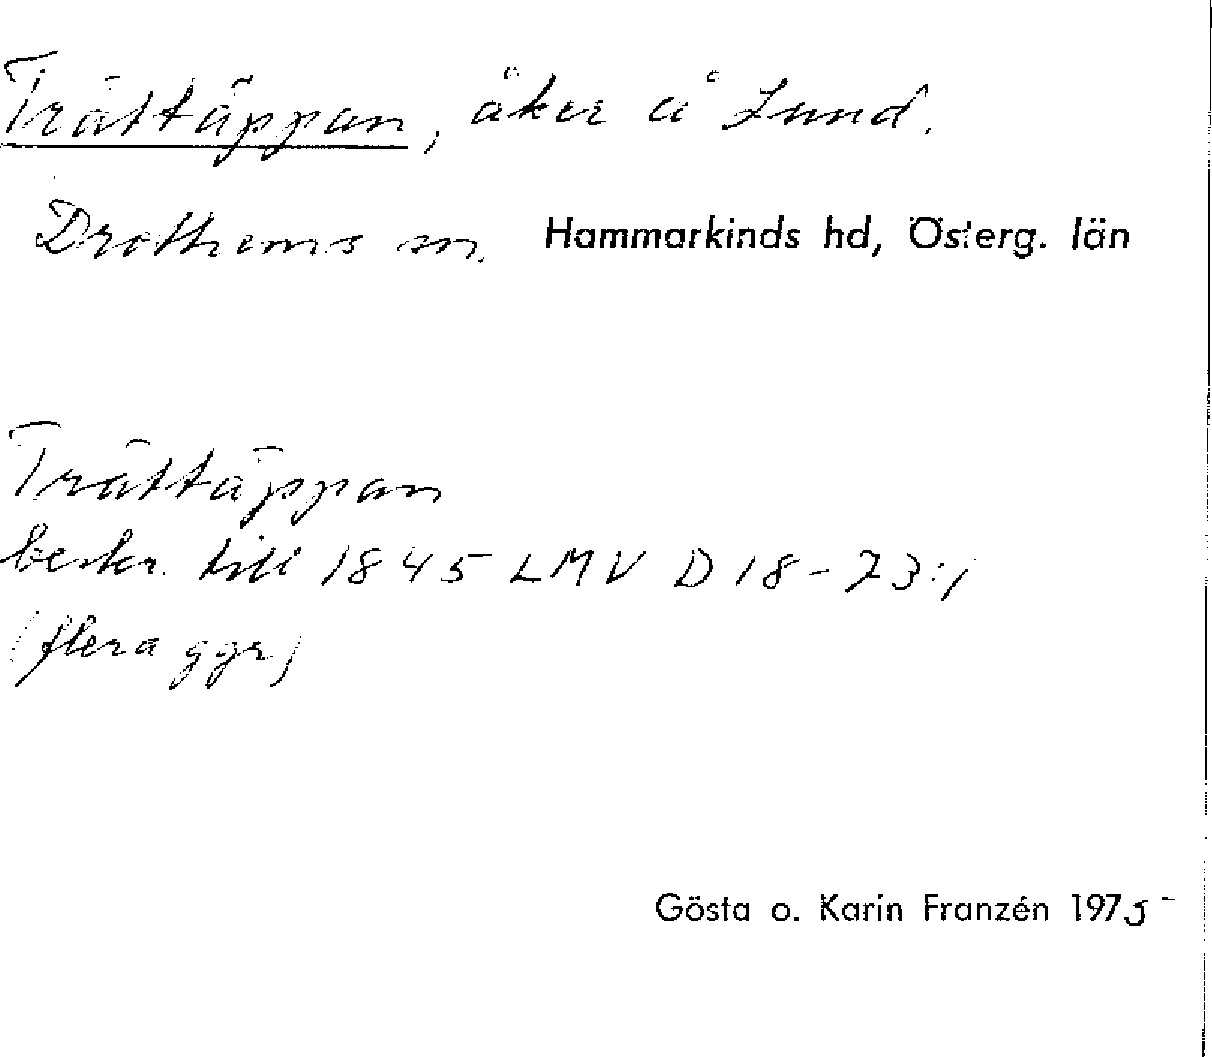 Trättäppan, åker å Lund.
Drothems sn. Hammarkinds hd, Österg. län
Trättäppan
beskr. till 1845 LMV D 18-23:1
(flera ggr)
Gösta o. Karin Franzén 1975